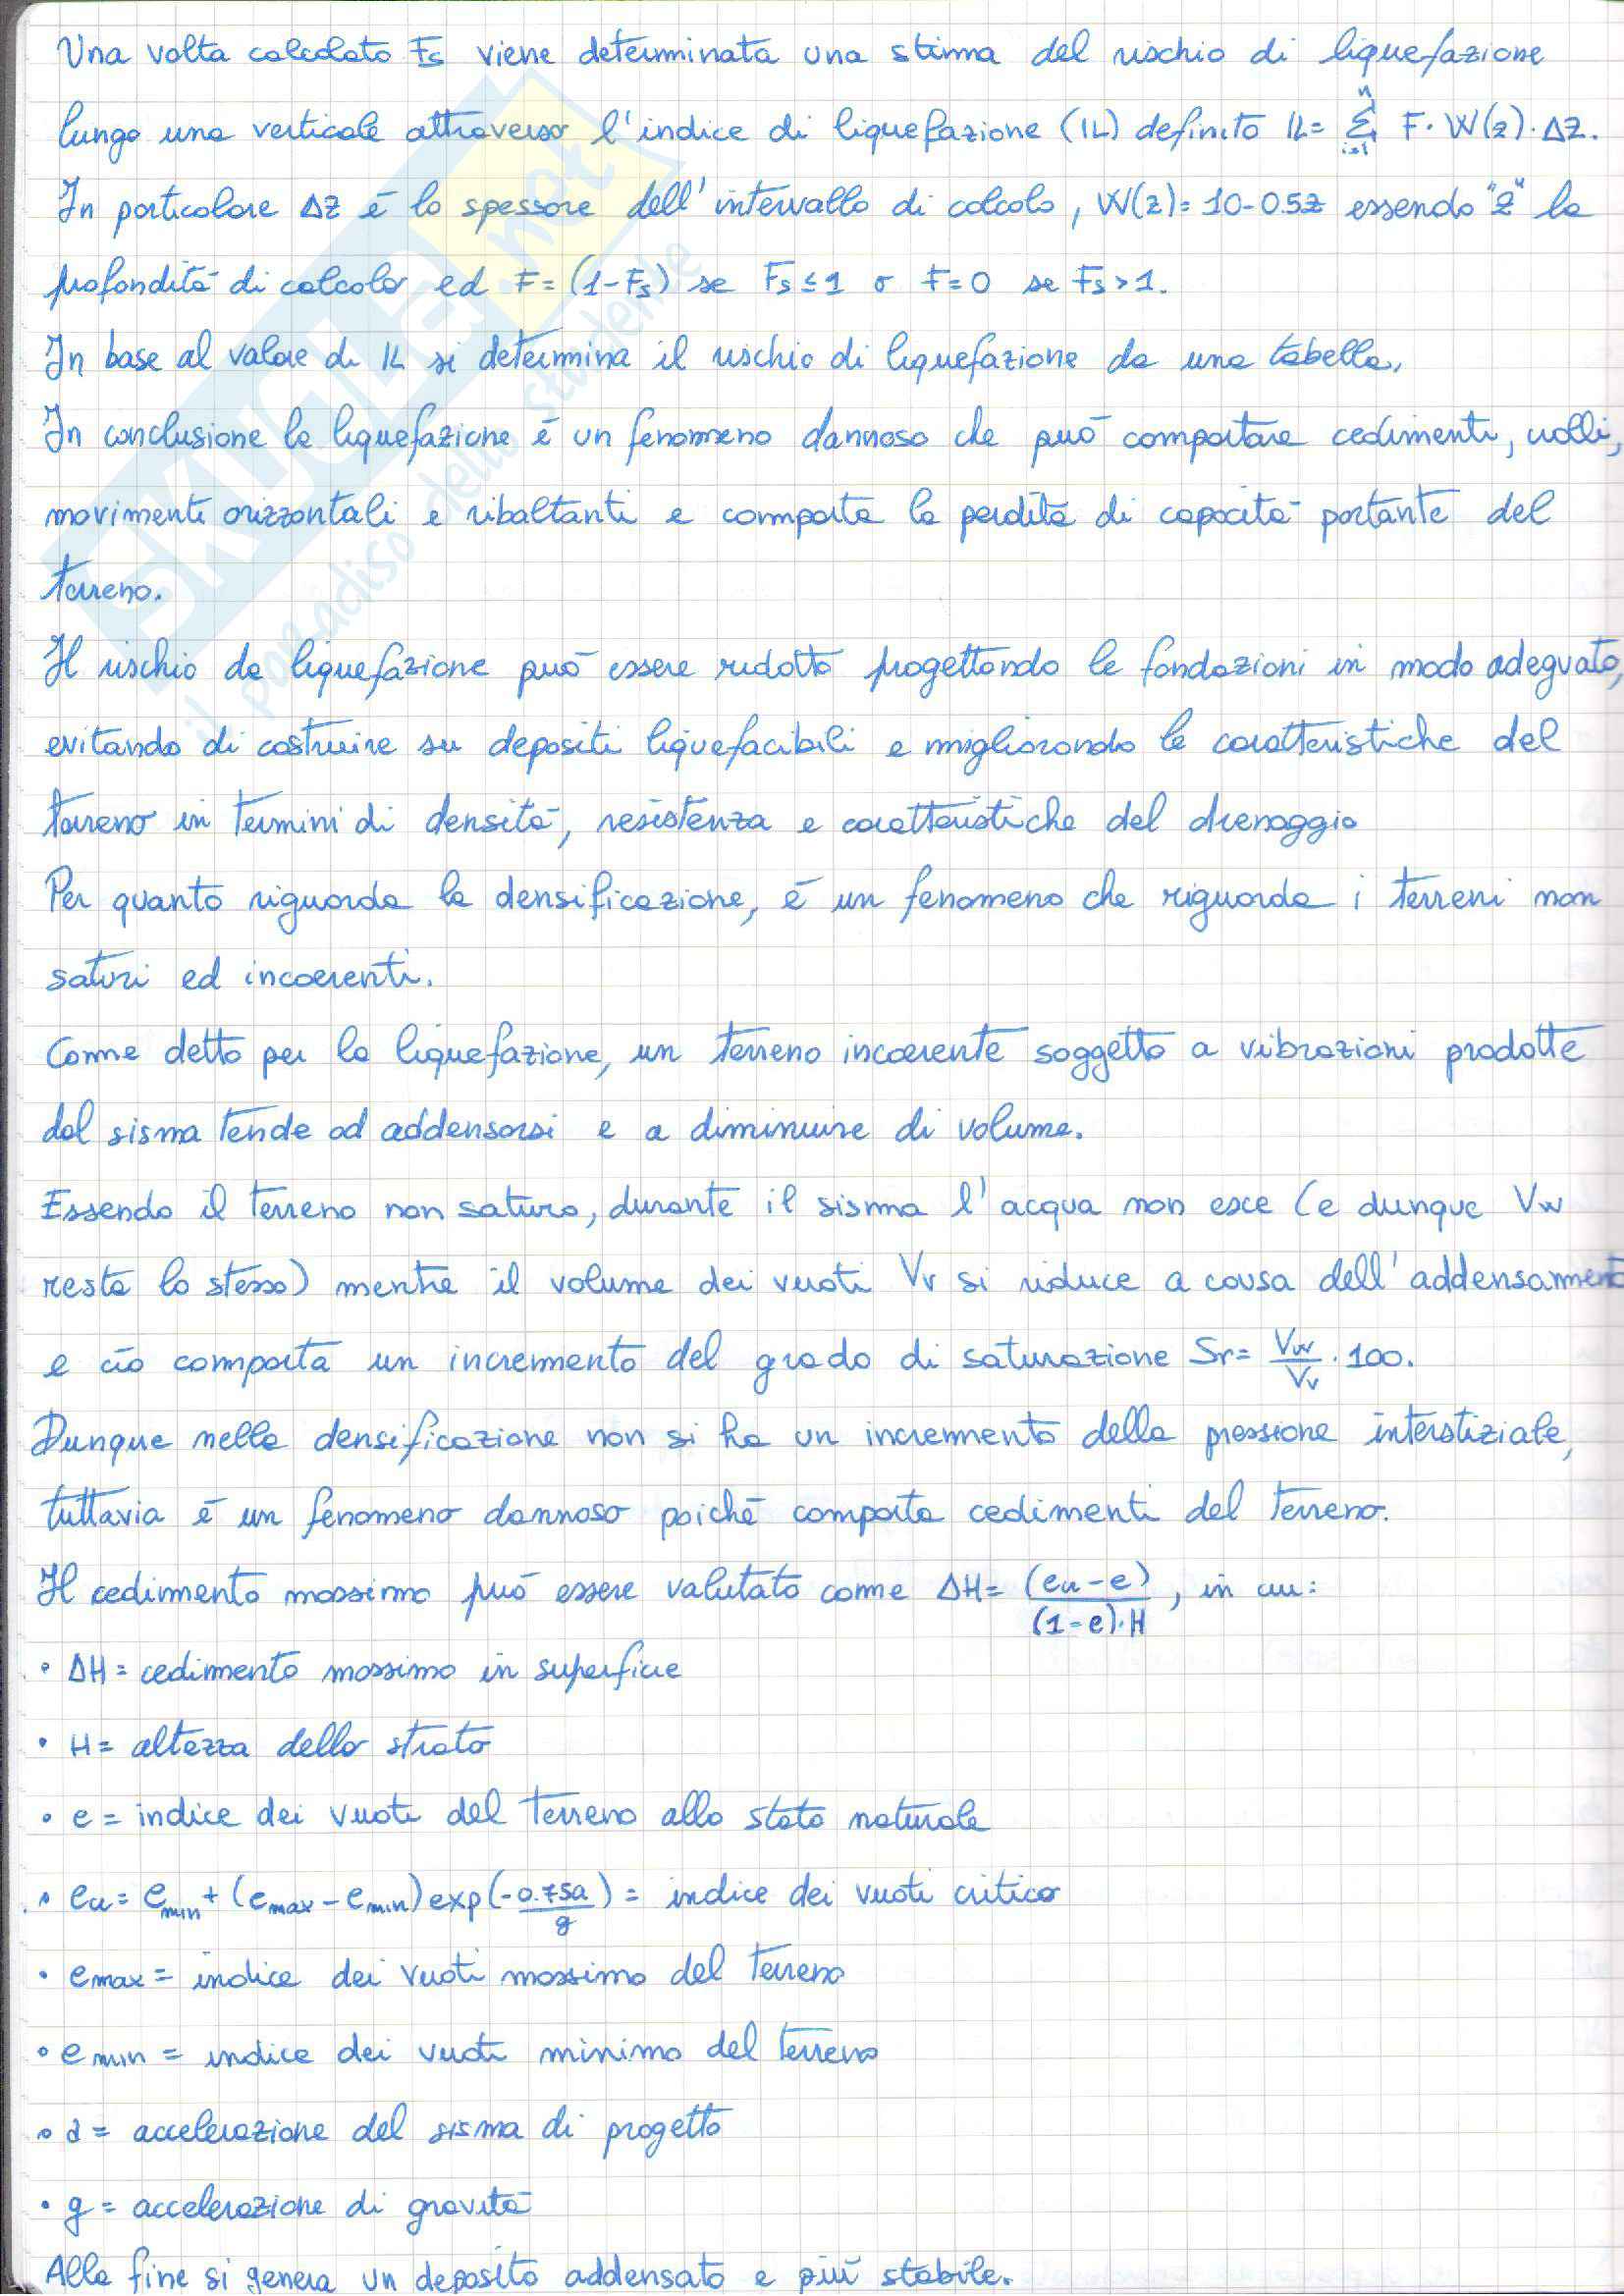 Una volta calcolato Fs viene determinata una stima del rischio di liquefazione
lungo una verticale attraverso l'indice di liquefazione (IL) definito IL= Σ(i=1→n) F·W(z)·ΔZ.
In particolare ΔZ è lo spessore dell'intervallo di calcolo, W(z)=10-0.5z essendo "z" la
profondità di calcolo ed F=(1-Fs) se Fs≤1 o F=0 se Fs>1.
In base al valore di IL si determina il rischio di liquefazione da una tabella.
In conclusione la liquefazione è un fenomeno dannoso che può comportare cedimenti, crolli,
movimenti orizzontali e ribaltanti e comporta la perdita di capacità portante del
terreno.
Il rischio da liquefazione può essere ridotto progettando le fondazioni in modo adeguato,
evitando di costruire su depositi liquefacibili e migliorando le caratteristiche del
terreno in termini di densità, resistenza e caratteristiche del drenaggio
Per quanto riguarda la densificazione, è un fenomeno che riguarda i terreni non
saturi ed incoerenti.
Come detto per la liquefazione, un terreno incoerente soggetto a vibrazioni prodotte
dal sisma tende ad addensarsi e a diminuire di volume.
Essendo il terreno non saturo, durante il sisma l'acqua non esce (e dunque Vw
resta lo stesso) mentre il volume dei vuoti Vv si riduce a causa dell'addensamento
e ciò comporta un incremento del grado di saturazione Sr= Vw/Vv · 100.
Dunque nella densificazione non si ha un incremento della pressione interstiziale,
tuttavia è un fenomeno dannoso poiché comporta cedimenti del terreno.
Il cedimento massimo può essere valutato come ΔH= (ecr-e)/(1-e)·H, in cui:
• ΔH= cedimento massimo in superficie
• H= altezza dello strato
• e= indice dei vuoti del terreno allo stato naturale
• ecr= emin+(emax-emin)exp(-0.75a/g)= indice dei vuoti critico
• emax= indice dei vuoti massimo del terreno
• emin= indice dei vuoti minimo del terreno
• a= accelerazione del sisma di progetto
• g= accelerazione di gravità
Alla fine si genera un deposito addensato e più stabile.
SKUOLA.net
il paradiso dello studente